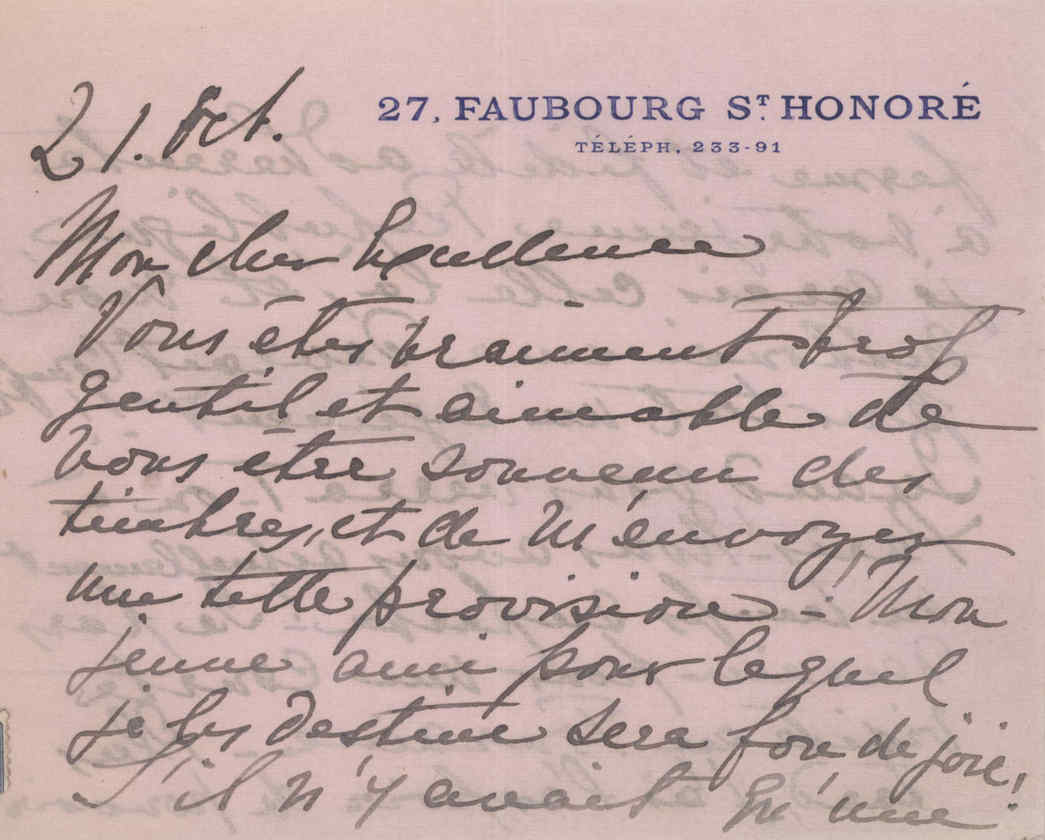 21. Oct.
27, FAUBOURG ST. HONORÉ
TÉLÉPH. 233-91
Mon cher Excellence
Vous êtes vraiment trop
gentil et aimable de
vous être souvenu des
timbres, et de m'envoyer
une telle provision - Mon
jeune ami pour lequel
je les destine sera fou de joie!
S'il n'y avait qu'une